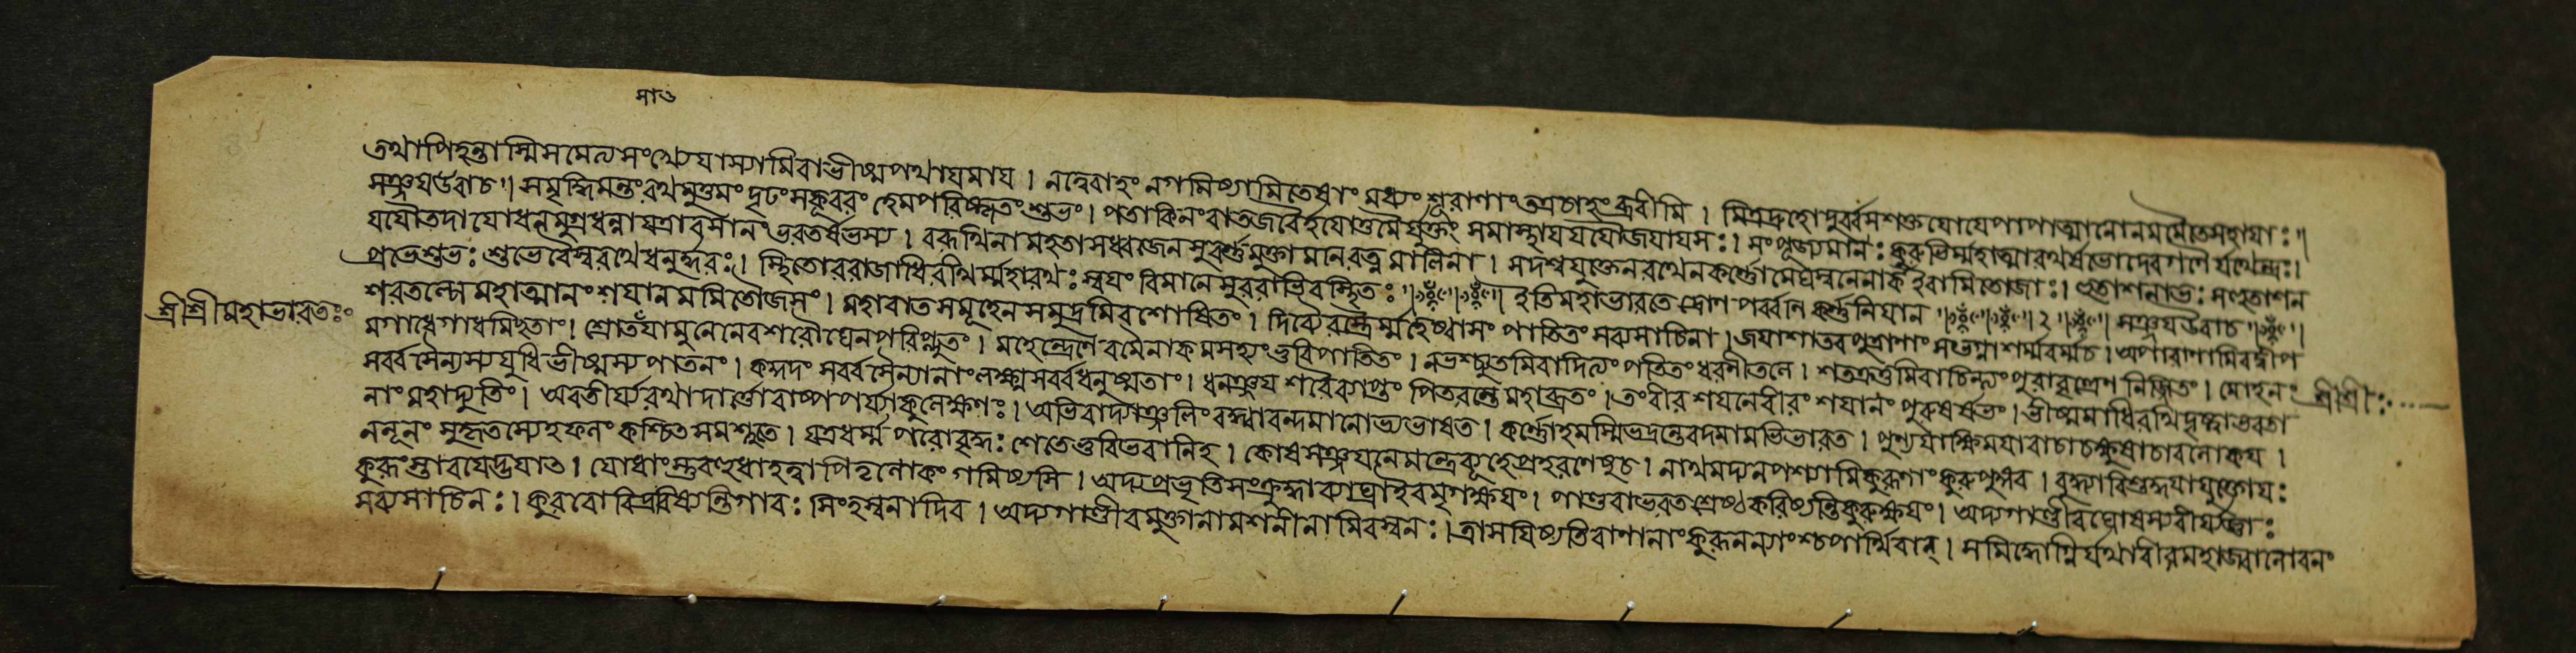 মাণ্ড
তথাপিহন্তাস্মিসমেত্যসংখ্যেযাস্যামিবাভীষ্মপথাযমায । নত্বেবাহং নগমিষ্যামিতেষাং মধ্যং শূরাণাং তত্রচাহং ব্রবীমি । মিত্রদ্রহোদুর্ব্বলশক্তযোযেপাপাত্মানোনমমৈতেসহাযাঃ॥
সঞ্জযউবাচ॥ সমৃদ্ধিমন্তংরথমুত্তমং দৃঢংসকূবরং হেমপরিষ্কৃতংশুভং। পতাকিনংবাতজবৈর্হযোত্তমৈর্যুক্তং সমাস্থাযযযৌজযাযসঃ। সংপূজ্যমানঃ কুরুভির্ম্মহাত্মারথর্ষভোদেবগণৈর্যথেন্দ্রঃ।
যযৌতদাযোধনমুগ্রধন্বাযত্রাবসানং ভরতর্ষভস্য । বরূথিনামহতাসধ্বজেনসুবর্ণমুক্তামনিরত্নমালিনা । সদশ্বযুক্তেনরথেনকর্ণোমেঘস্বনেনার্কইবামিতৌজাঃ। হুতাশনাভঃসহুতাশন
প্রভেশুভঃ শুভেবৈস্বরথেধনুর্দ্ধরঃ। স্থিতোররাজাধিরথির্ম্মহারথঃ স্বযং বিমানেসুররাডিবস্থিতঃ॥ ইতিমহাভারতেদ্রোণপর্ব্বণিকর্ণনির্যানে॥ ২ ॥ সঞ্জযউবাচ॥
শ্রীশ্রীমহাভারতঃ শরতল্পেমহাত্মানংশযানমমিতৌজসং। মহাবাতসমূহেনসমুদ্রমিবশোষিতং। দিব্যৈরস্ত্রৈর্ম্মহেষ্বাসং পাতিতংসব্যসাচিনা । জযাশাতবপুত্রাণাং সংভগ্নাশর্ম্মবর্ম্মচ। অপারাণামিবদ্বীপ
মগাধেগাধমিচ্ছতাং। শ্রোতসাঁযামুনেনেবশরৌঘেনপরিপ্লুতং। মহেন্দ্রেণেবমৈনাকমসহ্যংভুবিপাতিতং। নভশ্চ্যুতমিবাদিত্যংপতিতংধরনীতলে । শতক্রতুমিবাচিন্ত্যংপুরাবৃত্রেণনির্জিতং। মোহনং শ্রীশ্রীঃ
সর্ব্বসৈন্যস্যযুধিভীষ্মস্যপাতনং। ককুদং সর্ব্বসৈন্যানাংলক্ষ্মসর্ব্বধনুষ্মতাং। ধনঞ্জযশরৈর্ব্যাপ্তং পিতরন্তেমহাব্রতং। তংবীরশযনেবীরং শযানং পুরুষর্ষভং। ভীষ্মমাধিরথির্দৃষ্ট্বাভরতা
নাংমহাদ্যুতিং। অবতীর্য্যরথাদার্ত্তোবাষ্পপর্য্যাকুলেক্ষণঃ। অভিবাদ্যাঞ্জলিংবদ্ধ্বাবন্দমানোভ্যভাষত । কর্ণোহমস্মিভদ্রন্তেবদমামভিভারত । পুণ্যযাক্ষেম্যযাবাচাচক্ষুষাচাবলোকয ।
ননূনং সুকৃতস্যেহফলংকশ্চিতসমশ্নুতে । যত্রধর্ম্মপরোবৃদ্ধঃ শেতেভুবিভবানিহ । কোষসঞ্চযনেমন্ত্রেব্যূহেপ্রহরণেষুচ। নাথমদ্যনপশ্যামিকুরূণাংকুরুপুঙ্গব । বুদ্ধ্যাবিশুদ্ধযাযুক্তোযঃ
কুরূংস্তারযেদ্ভযাত । যোধাংস্তুবহুধাহত্বাপিতৃলোকং গমিষ্যসি । অদ্যপ্রভৃতিসংক্রুদ্ধাব্যাঘ্রাইবমৃগক্ষযং। পাণ্ডবাভরতশ্রেষ্ঠকরিষ্যন্তিকুরুক্ষযং। অদ্যগাণ্ডীবঘোষস্যবীর্যজ্ঞাঃ
সব্যসাচিনঃ। কুরবোবিপ্রবিষ্যন্তিগাবঃ সিংহস্বনাদিব । অদ্যগাণ্ডীবমুক্তানামশনীনামিবস্বনঃ। ত্রাসযিষ্যতিবাণানাংকুরূনন্যাংশ্চপার্থিবান্। সমিদ্ধোগ্নির্যথাবীরমহাজ্বালোবনং